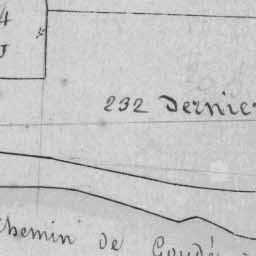 4
232 Dernier
Chemin de Goudé